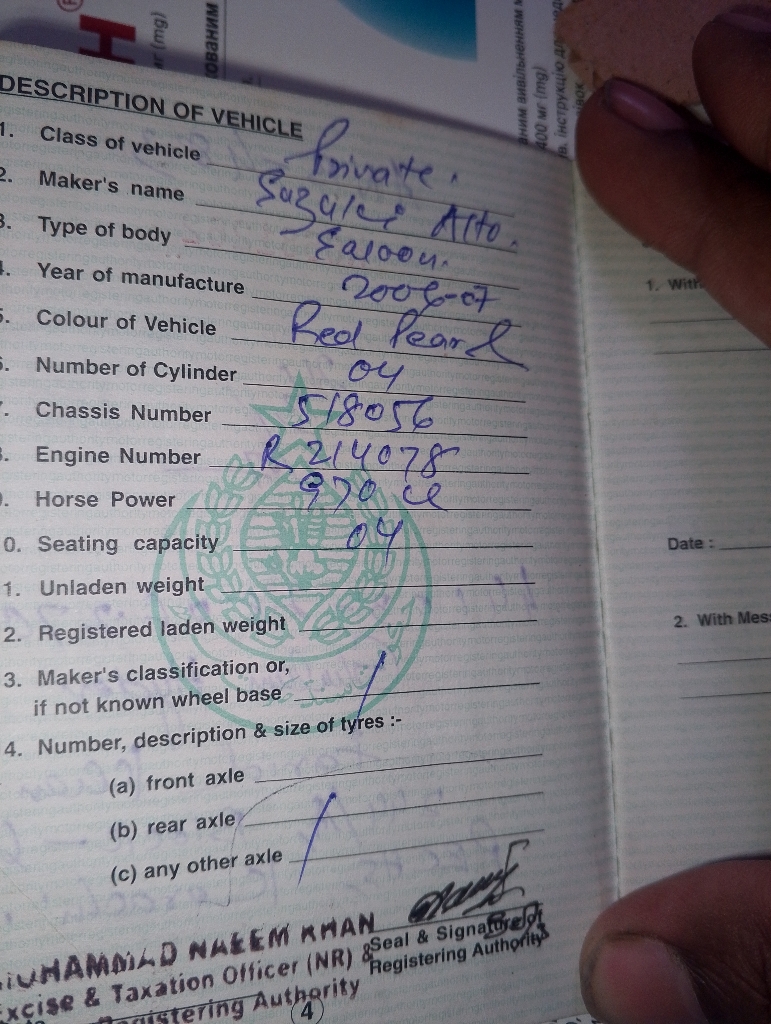 H
®
мг (mg)
кованим
аним вивільненням
400 мг (mg)
в. інструкцію до
DESCRIPTION OF VEHICLE
1. Class of vehicle Private.
2. Maker's name Suzuki Alto.
3. Type of body Saloon.
4. Year of manufacture 2006-07
5. Colour of Vehicle Red Pearl
6. Number of Cylinder 04
7. Chassis Number 518056
8. Engine Number R 214078
9. Horse Power 970 cc
0. Seating capacity 04
1. Unladen weight
2. Registered laden weight
3. Maker's classification or,
if not known wheel base
4. Number, description & size of tyres :-
(a) front axle
(b) rear axle
(c) any other axle
MUHAMMAD NAEEM KHAN
Excise & Taxation Officer (NR) &
Registering Authority
Seal & Signature of
Registering Authority
4
1. With
Date :
2. With Mes